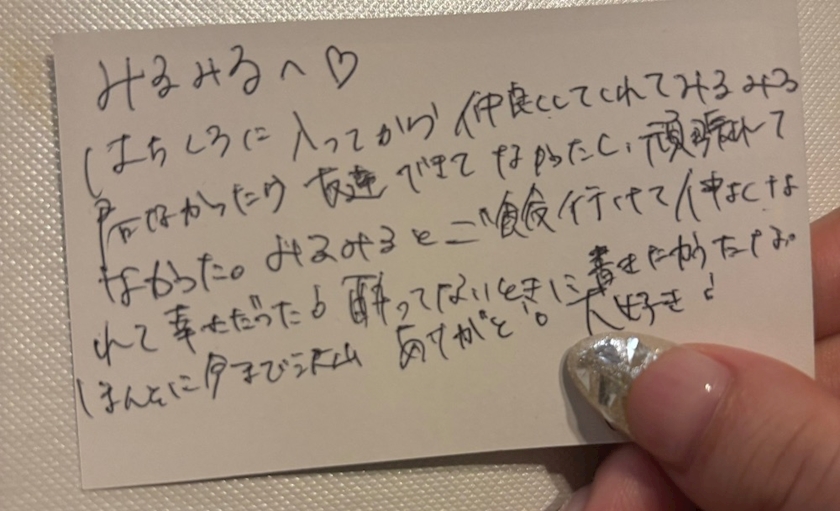 みるみるへ♡
はちしろに入ってから仲良くしてくれてみるみる
居なかったら友達できてなかったし、頑張れて
なかった。みるみるとご飯行けて仲よくな
れて幸せだった! 酔ってないときに書きたかったな。
ほんとに今まで沢山ありがと!。大好き!